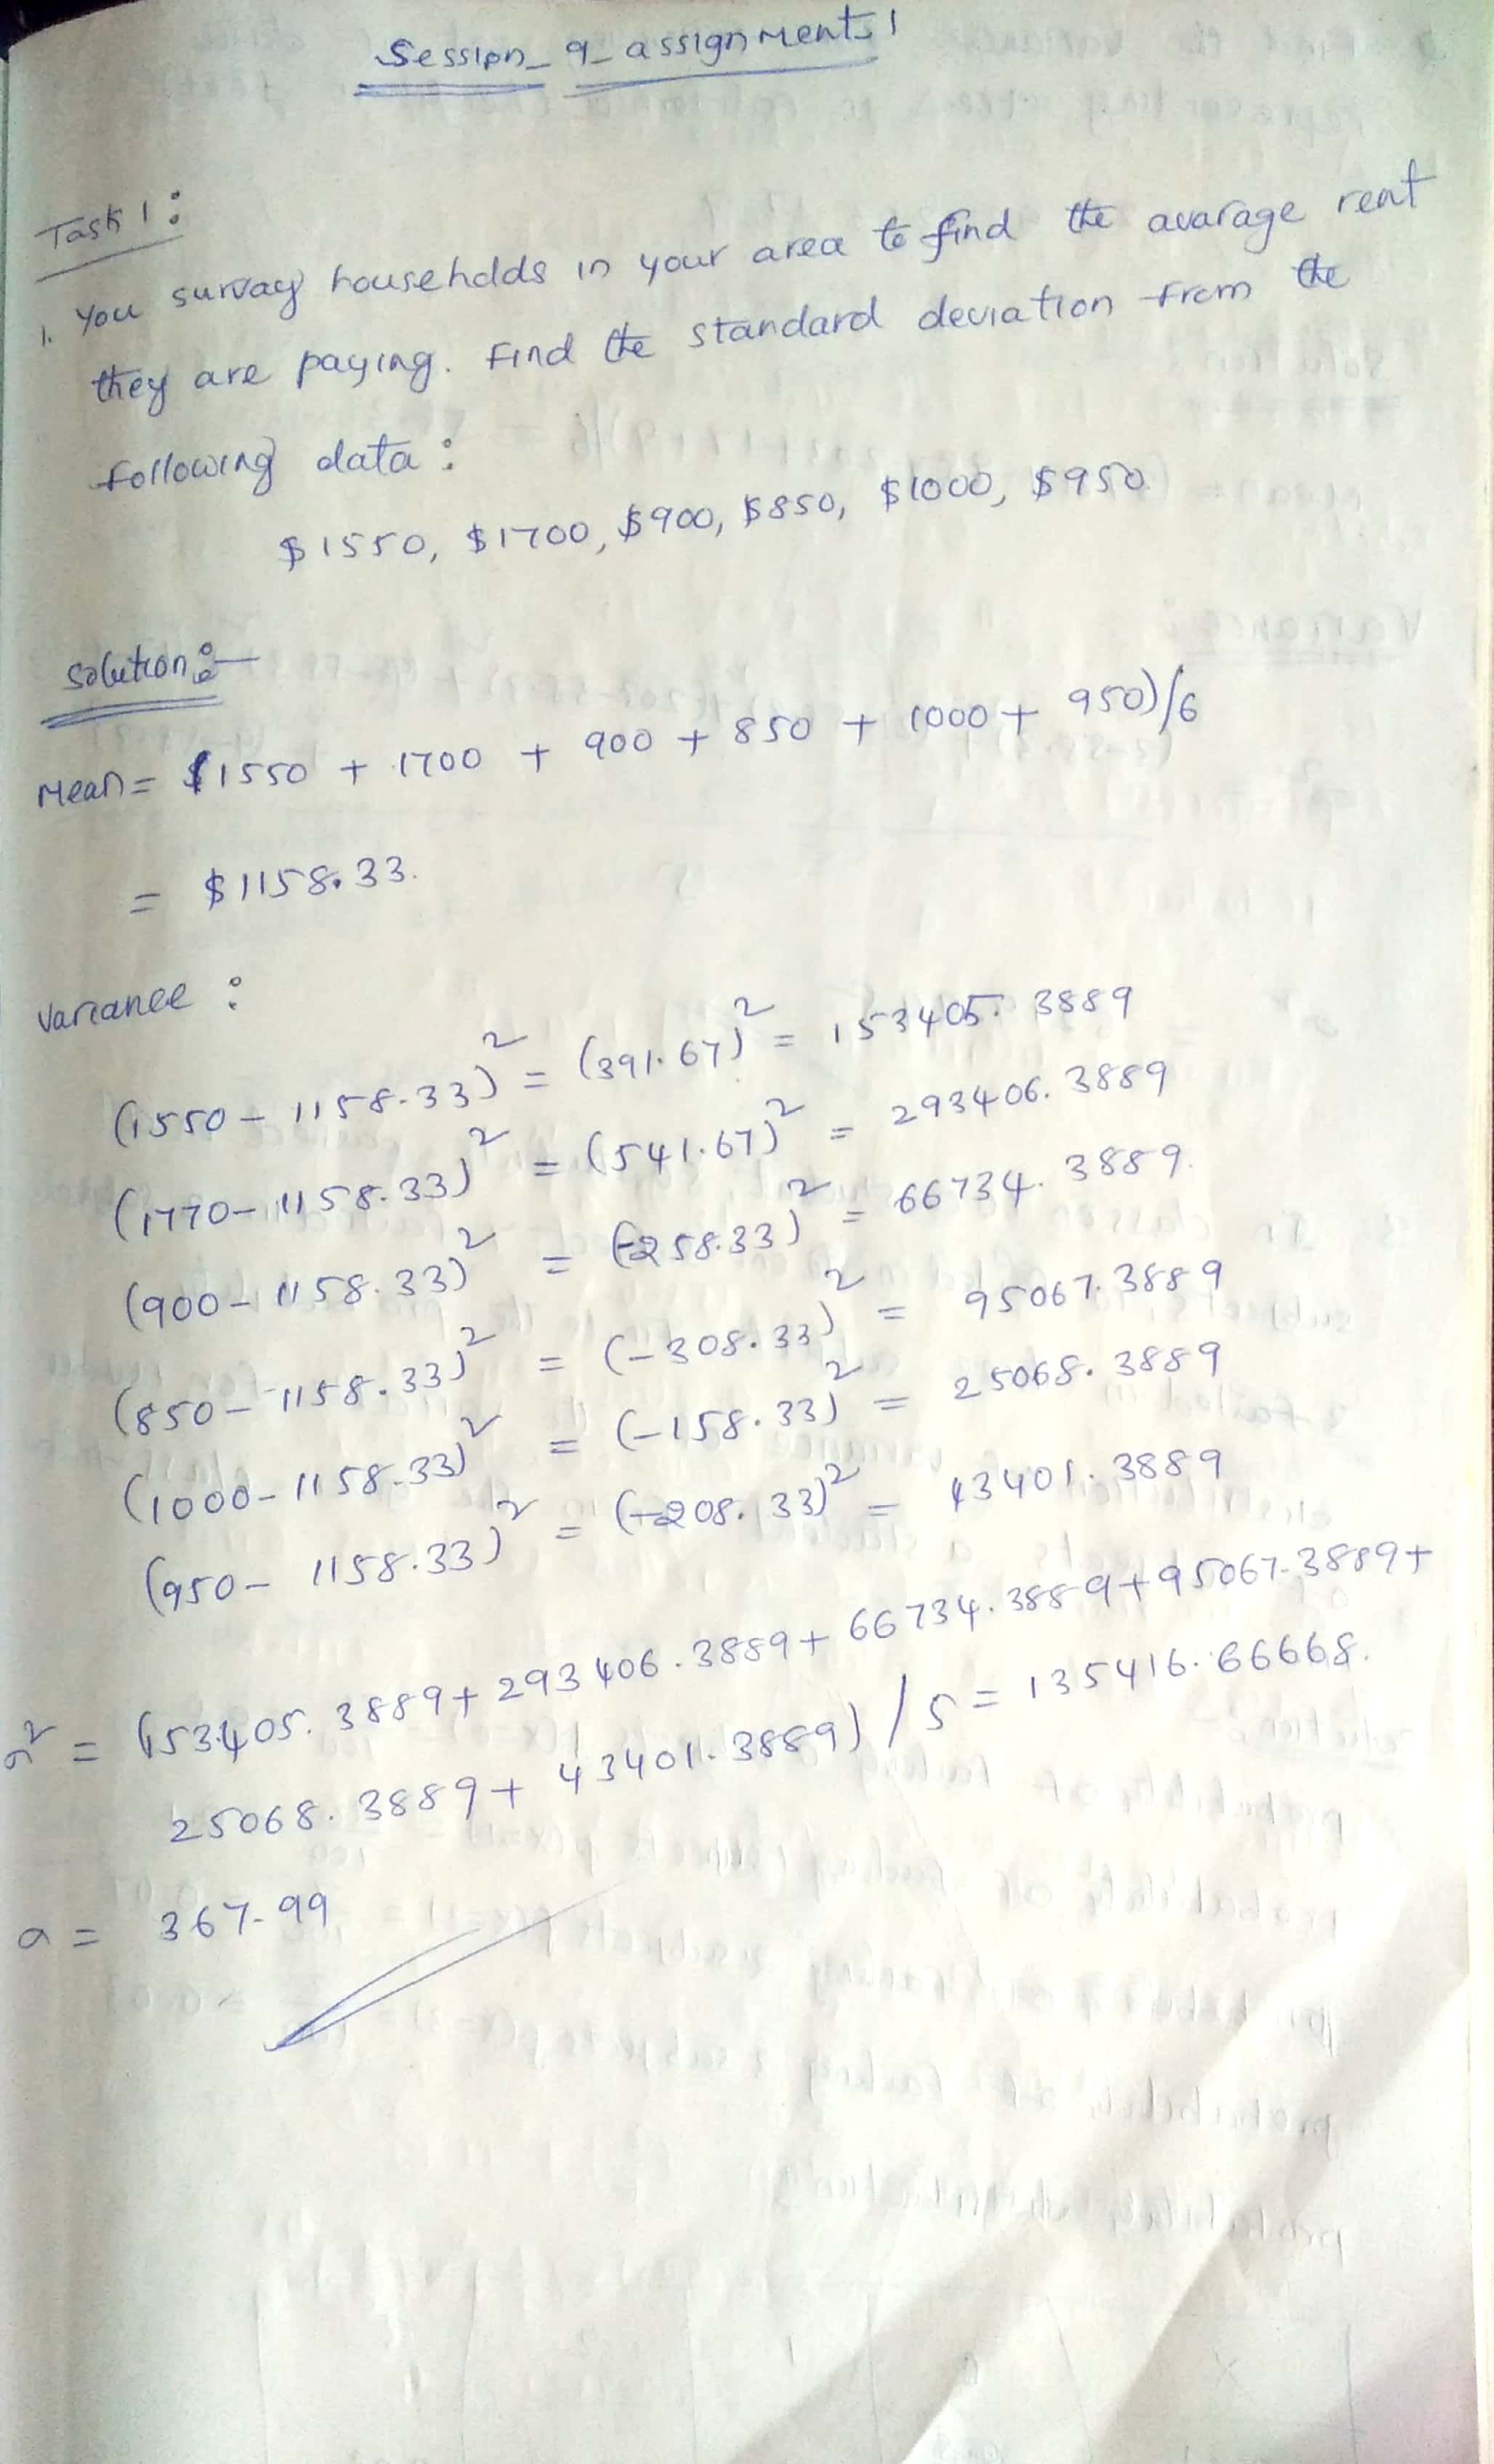 Session_9_assignments 1
Task 1:
1. You survay households in your area to find the avarage rent
they are paying. Find the standard deviation from the
following data:
$1550, $1700, $900, $850, $1000, $950.
Solution:-
Mean = $1550 + 1700 + 900 + 850 + 1000 + 950)/6
= $1158.33.
Variance :
(1550 - 1158.33)² = (391.67)² = 153405.3889
(1770 - 1158.33)² = (541.67)² = 293406.3889
(900 - 1158.33)² = (-258.33)² = 66734.3889.
(850 - 1158.33)² = (-308.33)² = 95067.3889
(1000 - 1158.33)² = (-158.33)² = 25068.3889
(950 - 1158.33)² = (-208.33)² = 43401.3889
σ² = (153405.3889 + 293406.3889 + 66734.3889 + 95067.3889 +
25068.3889 + 43401.3889) / 5 = 135416.66668.
σ = 367.99